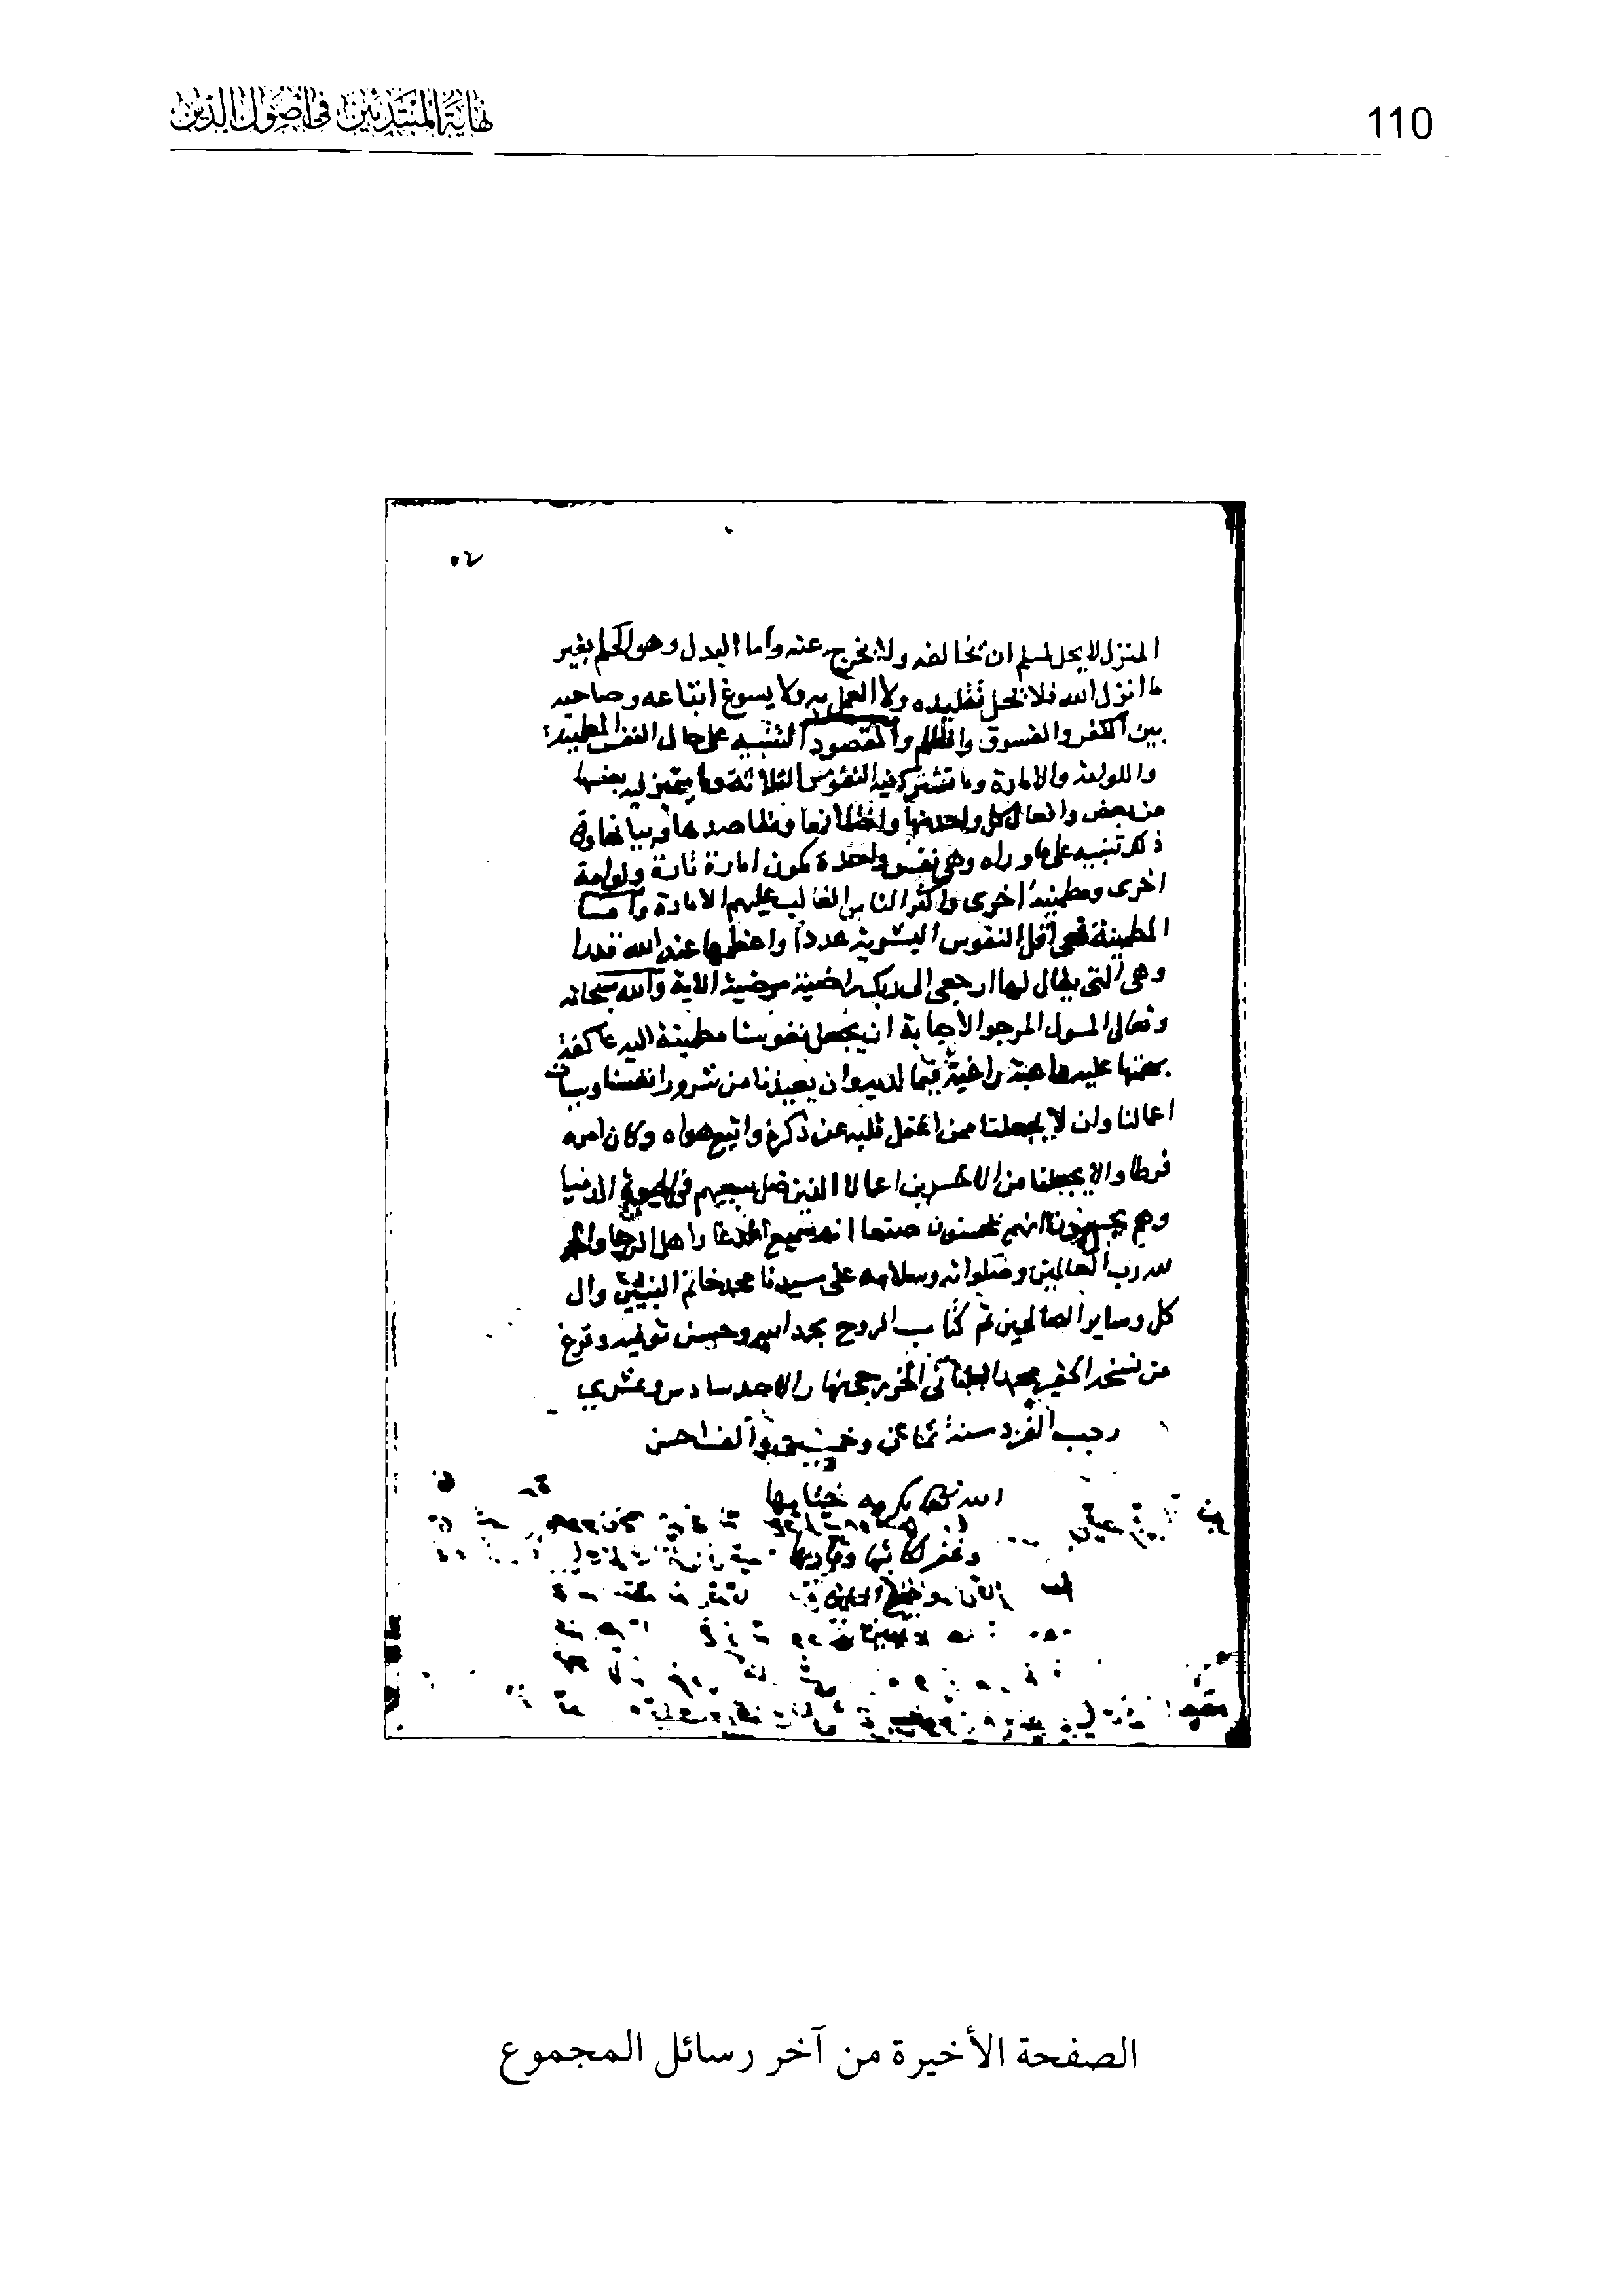 110
نهاية المبتدئين في أصول الدين
المنزل لا يحل لمسلم ان يخالفه ولا يخرج عنه واما البدل وهو الحكم بغير
ما انزل الله فلا يحل تقليده ولا العمل به ولا يسوغ اتباعه وصاحبه
بين الكفر والفسوق والظلم والمقصود التنبيه على حال النفس المطمينة
واللوامة والامارة وما تشترك فيه النفوس الثلاثة وما يتميز به بعضها
من بعض وافعال كل واحدة منها واختلافها ومقاصدها وبياتها وفي
ذلك تنبيه على ما وراه وهي نفس واحدة تكون امارة تارة ولوامة
اخرى ومطمينة اخرى واكثر الناس الغالب عليهم الامارة واما
المطمينة فهي اقل النفوس البشرية عددا واعظمها عند الله قدرا
وهي التي يقال لها ارجعي الى ربك راضية مرضية الاية والله سبحانه
وتعالى المسول المرجو الاجابة ان يجعل نفوسنا مطمينة اليه عاكفة
بهمتها عليه راهبة منه راغبة فيما لديه وان يعيذنا من شرور انفسنا وسيات
اعمالنا وان لا يجعلنا ممن اغفل قلبه عن ذكره واتبع هواه وكان امره
فرطا ولا يجعلنا من الاخسرين اعمالا الذين ضل سعيهم في الحيوة الدنيا
وهم يحسبون انهم يحسنون صنعا انه سميع الدعا واهل الرجا والحمد
لله رب العالمين وصلواته وسلامه على سيدنا محمد خاتم النبيين وال
كل وساير الصالحين تم كتاب الروح بحمد الله وحسن توفيقه وفرغ
من نسخه الحقير محمد البلباني الخزرجي نهار الاحد سادس وعشري
رجب الفرد سنة ثمان وخمسين والف احسن
الله تعالى بكرمه ختامها
وغفر لكاتبها وقاريها
الصفحة الأخيرة من آخر رسائل المجموع